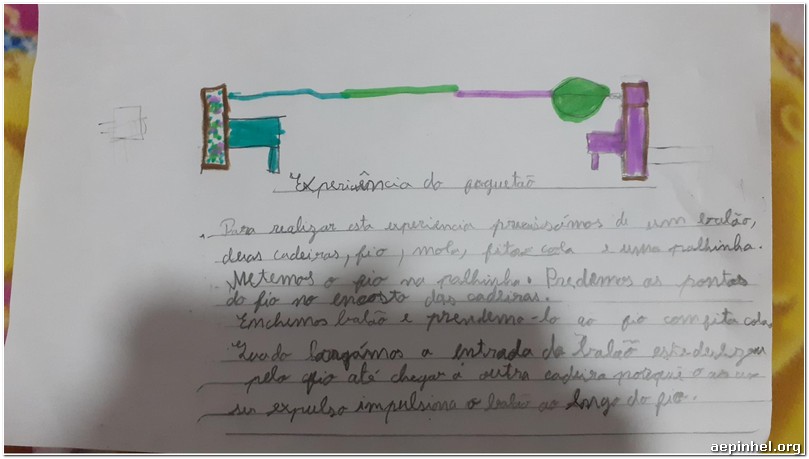 Experiência do foguetão
Para realizar esta experiencia precisámos de um balão,
duas cadeiras, fio, mola, fita-cola e uma palhinha.
Metemos o fio na palhinha. Prendemos as pontas
do fio no encosto das cadeiras.
Enchemos balão e prendemo-lo ao fio com fita cola.
largámos a entrada do balão este deslizou
pelo fio até chegar á outra cadeira porque o ao
ser expulso impulsiona o balão ao longo do fio.
aepinhel.org